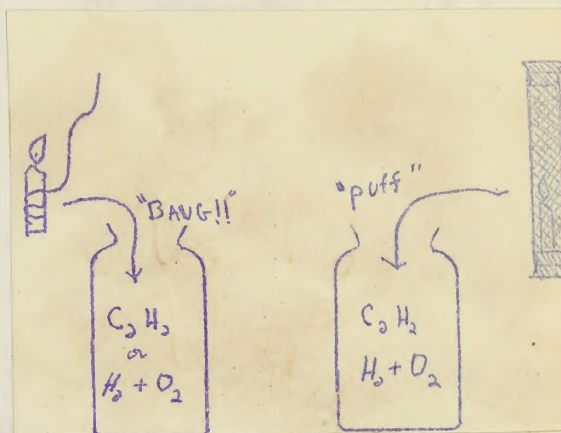 "BANG!!"
C₂H₂
or
H₂ + O₂
"puff"
C₂H₂
H₂ + O₂